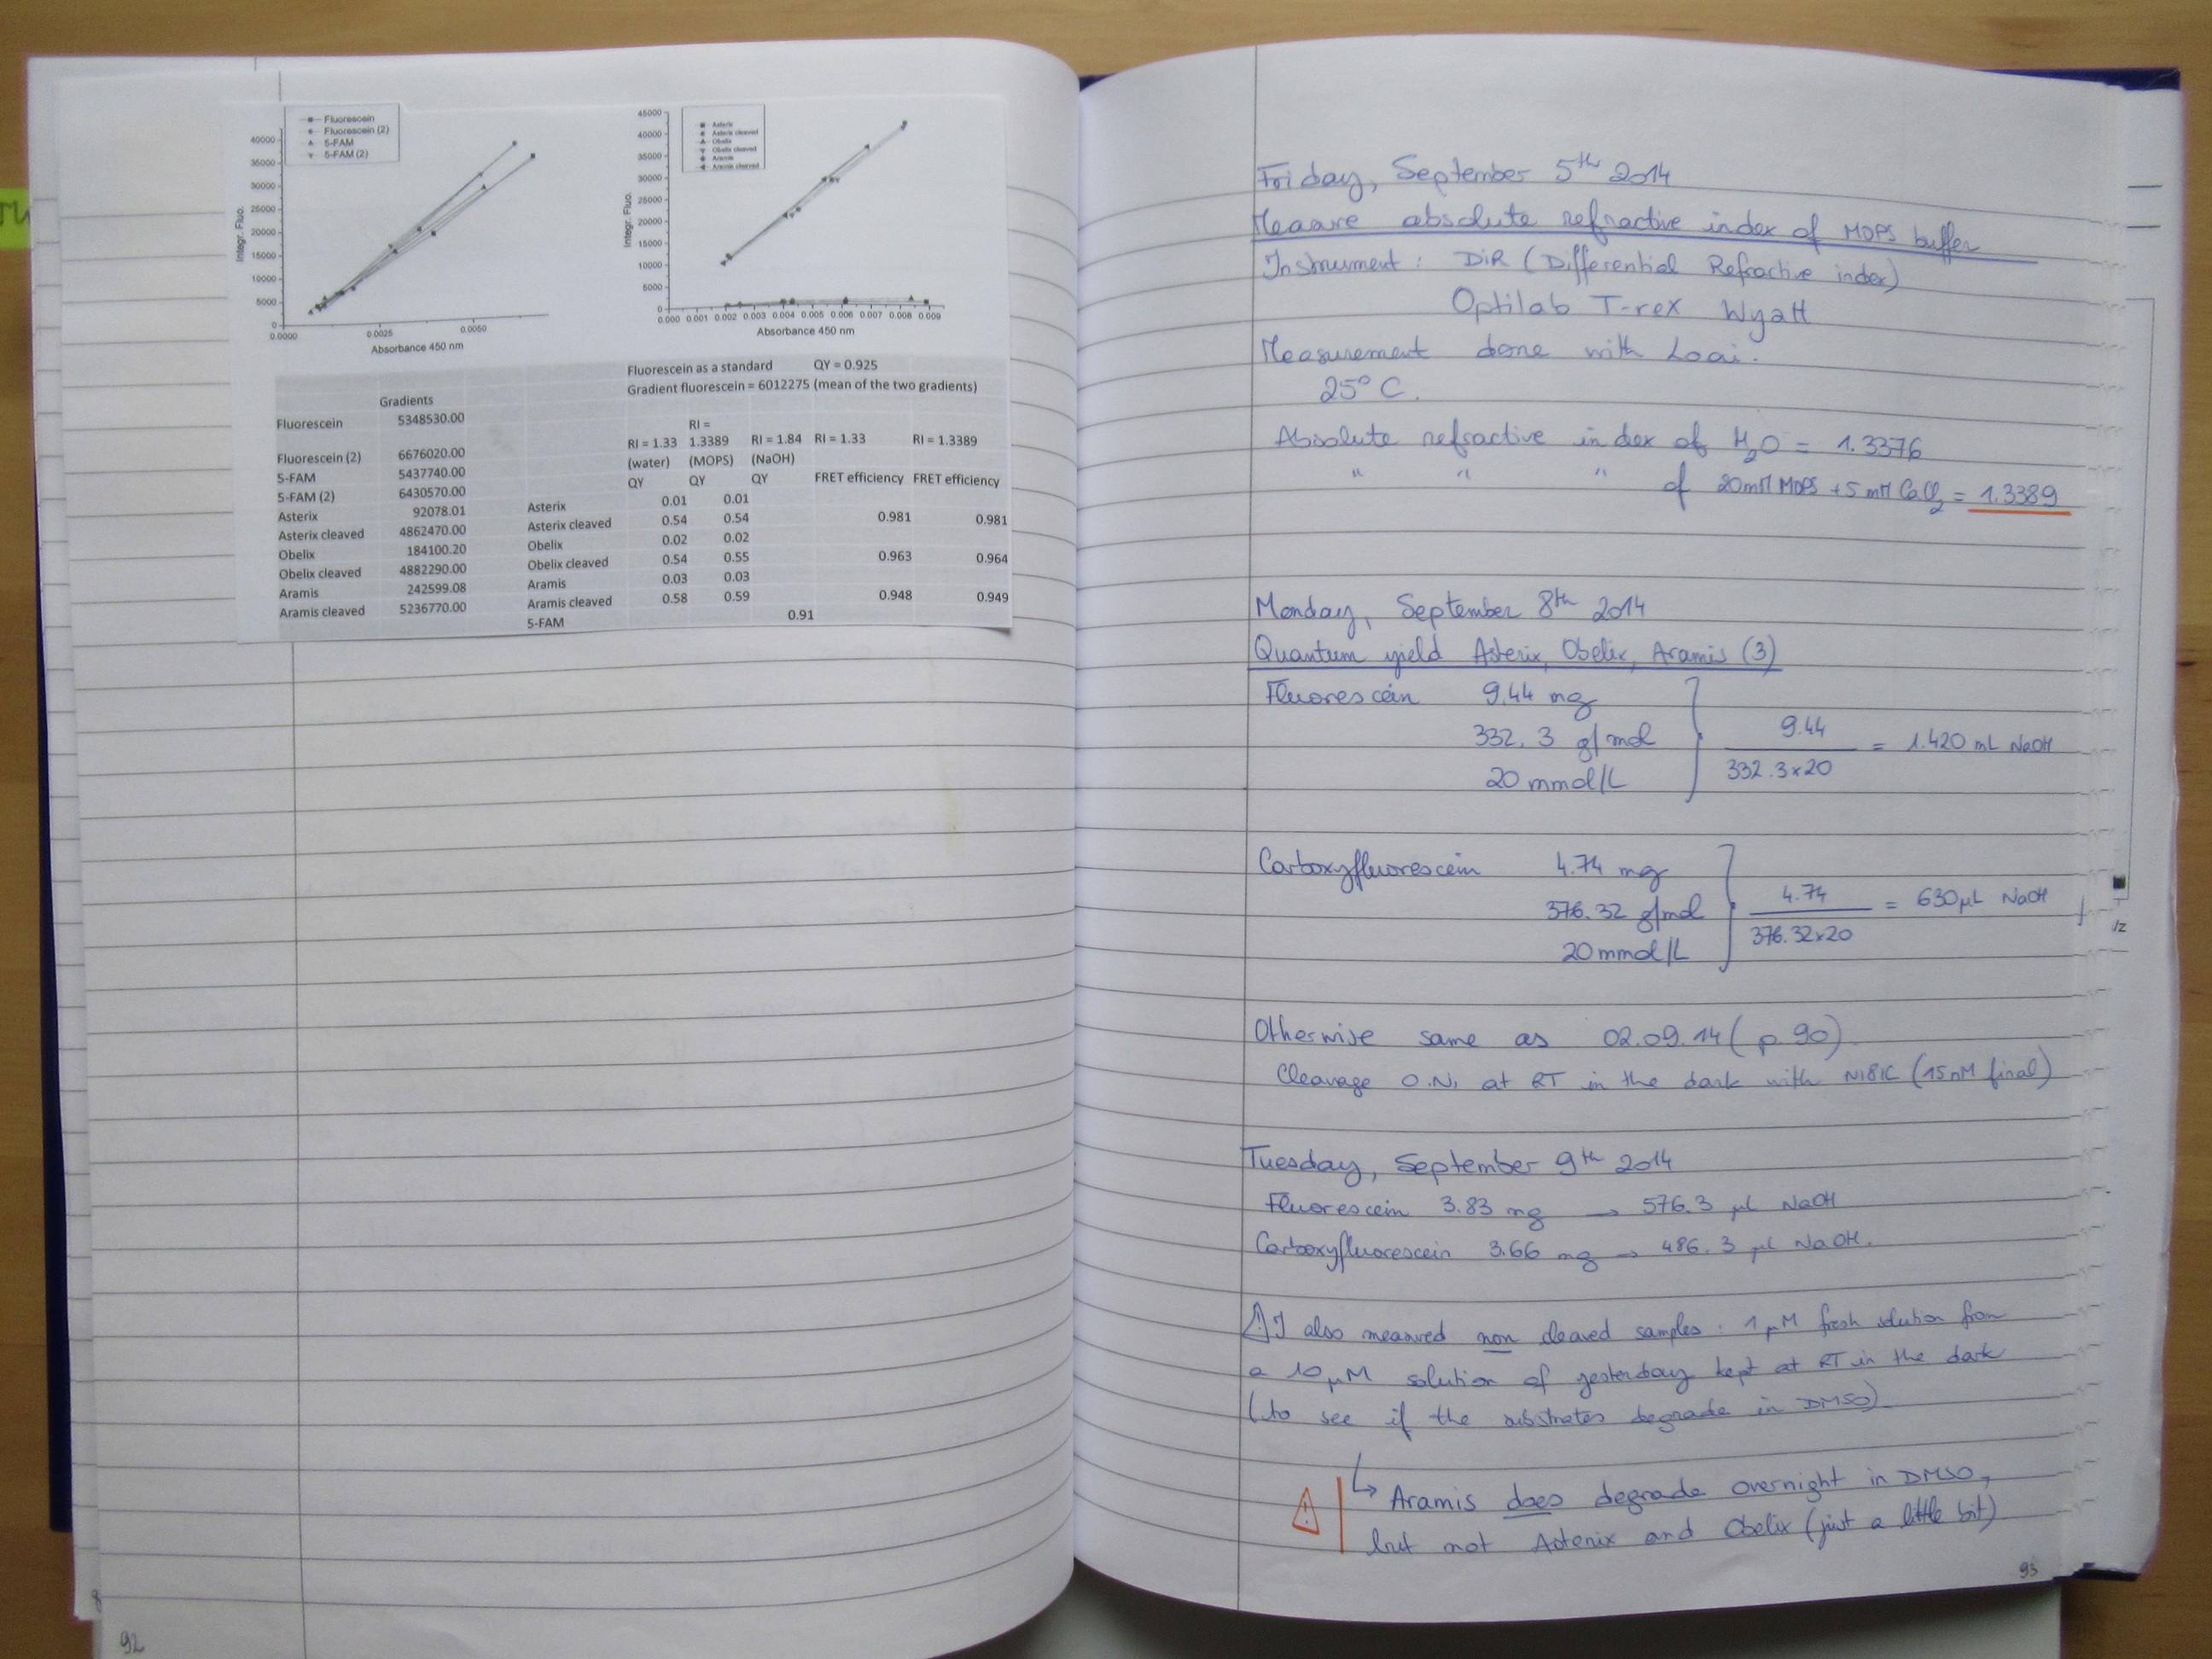 Fluorescein
Fluorescein (2)
5-FAM
5-FAM (2)
40000
35000
30000
25000
20000
15000
10000
5000
0
Integr. Fluo.
0.0000 0.0025 0.0050
Absorbance 450 nm
Asterix
Asterix cleaved
Obelix
Obelix cleaved
Aramis
Aramis cleaved
45000
40000
35000
30000
25000
20000
15000
10000
5000
0
Integr. Fluo.
0.000 0.001 0.002 0.003 0.004 0.005 0.006 0.007 0.008 0.009
Absorbance 450 nm
Gradients
Fluorescein 5348530.00
Fluorescein (2) 6676020.00
5-FAM 5437740.00
5-FAM (2) 6430570.00
Asterix 92078.01
Asterix cleaved 4862470.00
Obelix 184100.20
Obelix cleaved 4882290.00
Aramis 242599.08
Aramis cleaved 5236770.00
Fluorescein as a standard QY = 0.925
Gradient fluorescein = 6012275 (mean of the two gradients)
RI =
RI = 1.33 1.3389 RI = 1.84 RI = 1.33 RI = 1.3389
(water) (MOPS) (NaOH)
QY QY QY FRET efficiency FRET efficiency
Asterix 0.01 0.01
Asterix cleaved 0.54 0.54 0.981 0.981
Obelix 0.02 0.02
Obelix cleaved 0.54 0.55 0.963 0.964
Aramis 0.03 0.03
Aramis cleaved 0.58 0.59 0.948 0.949
5-FAM 0.91
92
Friday, September 5th 2014
Measure absolute refractive index of MOPS buffer
Instrument : DiR (Differential Refractive index)
Optilab T-rex Wyatt
Measurement done with Loai.
25° C.
Absolute refractive index of H2O = 1.3376
" " " of 20mM MOPS + 5 mM CaCl2 = 1.3389
Monday, September 8th 2014
Quantum yield Asterix, Obelix, Aramis (3)
Fluorescein 9.44 mg
332.3 g/mol
20 mmol/L
9.44
332.3x20
= 1.420 mL NaOH
Carboxyfluorescein 4.74 mg
376.32 g/mol
20 mmol/L
4.74
376.32x20
= 630µL NaOH
Otherwise same as 02.09.14 (p. 90)
Cleavage O.N. at RT in the dark with N181C (15nM final)
Tuesday, September 9th 2014
Fluorescein 3.83 mg → 576.3 µL NaOH
Carboxyfluorescein 3.66 mg → 486.3 µL NaOH.
⚠ I also measured non cleaved samples : 1 µM fresh solution from
a 10 µM solution of yesterday kept at RT in the dark
(to see if the substrates degrade in DMSO)
↳ Aramis does degrade overnight in DMSO,
⚠ but not Asterix and Obelix (just a little bit)
93